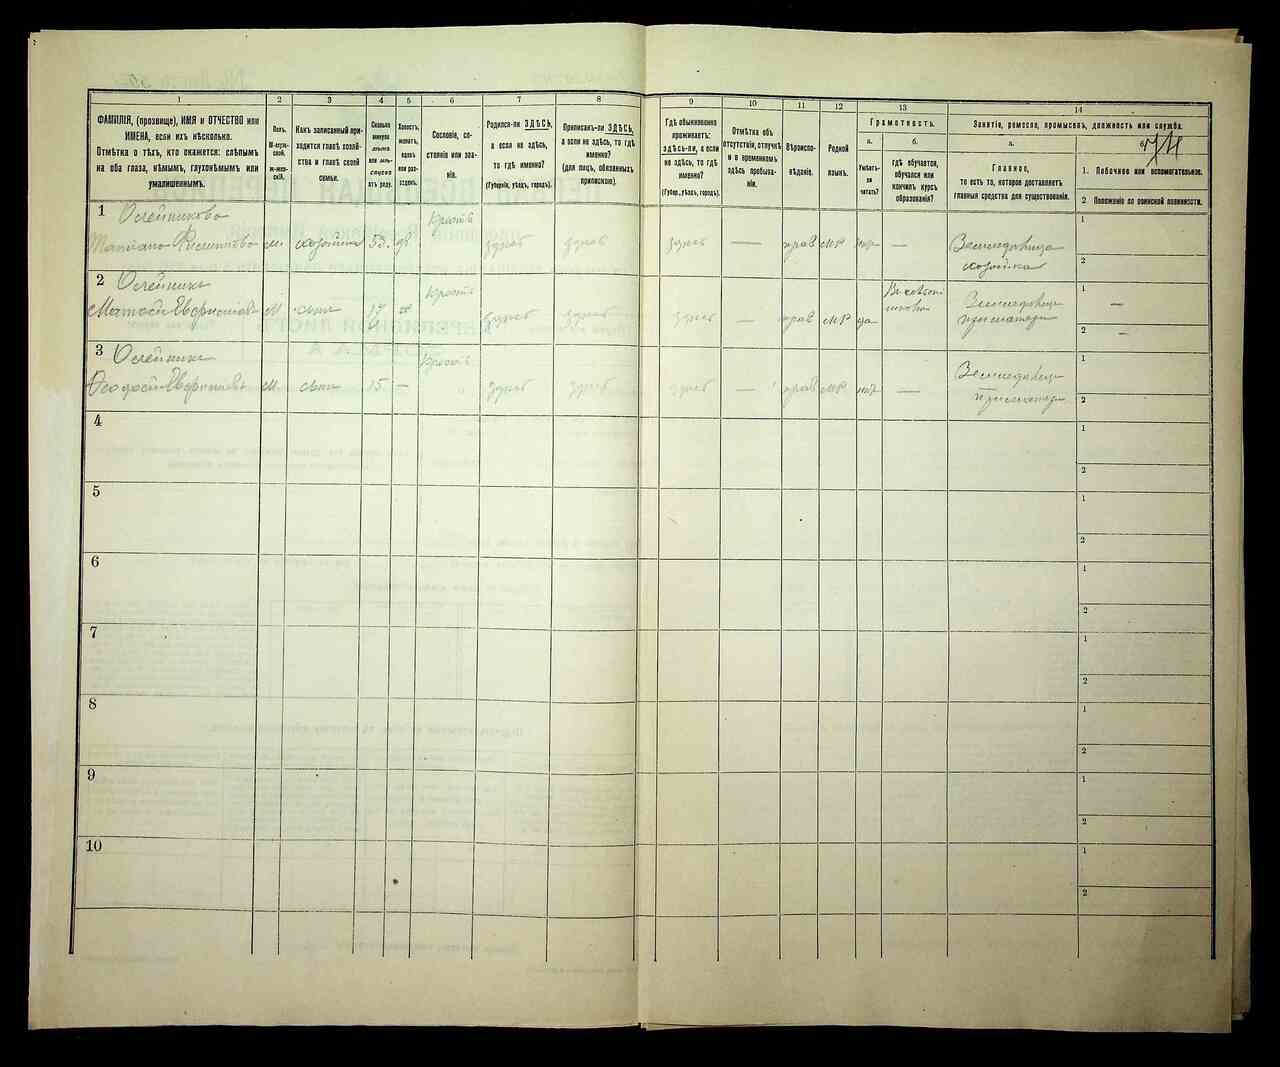 1
2
3
4
5
6
7
8
9
10
11
12
13
14
ФАМИЛІЯ, (прозвище), ИМЯ и ОТЧЕСТВО или
ИМЕНА, если ихъ нѣсколько.
Отмѣтка о тѣхъ, кто окажется: слѣпымъ
на оба глаза, нѣмымъ, глухонѣмымъ или
умалишеннымъ.
Полъ.
М-мужской,
ж-женскій.
Какъ записанный при-
ходится главѣ хозяй-
ства и главѣ своей
семьи.
Сколько
минуло
лѣтъ
или мѣ-
сяцевъ
отъ роду.
Холостъ,
женатъ,
вдовъ
или раз-
веденъ.
Сословіе, со-
стояніе или зва-
ніе.
Родился-ли ЗДѢСЬ,
а если не здѣсь,
то гдѣ именно?
(Губернія, уѣздъ, городъ).
Приписанъ-ли ЗДѢСЬ,
а если не здѣсь, то гдѣ
именно?
(для лицъ, обязанныхъ
припискою).
Гдѣ обыкновенно
проживаетъ:
здѣсь-ли, а если
не здѣсь, то гдѣ
именно?
(Губер., уѣздъ, городъ).
Отмѣтка объ
отсутствіи, отлучкѣ
и о временномъ
здѣсь пребыва-
ніи.
Вѣроиспо-
вѣданіе.
Родной
языкъ.
Грамотность.
а.
Умѣетъ-
ли
читать?
б.
гдѣ обучается,
обучался или
кончилъ курсъ
образованія?
Занятіе, ремесло, промыселъ, должность или служба.
а.
Главное,
то есть то, которое доставляетъ
главныя средства для существованія.
б.
1. Побочное или вспомогательное.
2 Положеніе по воинской повинности.
1 Олейникова
Крестъ
1
здѣсь здѣсь здѣсь — прав МР нѣт —
хозяйка
2
2 Олейникъ
Крестъ
1 —
М сынъ здѣсь здѣсь здѣсь — прав МР да
2 —
3 Олейникъ
Крестъ
1
М сынъ 15 — здѣсь здѣсь здѣсь — прав МР нѣт —
2
4 1
2
5 1
2
6 1
2
7 1
2
8 1
2
9 1
2
10 1
2